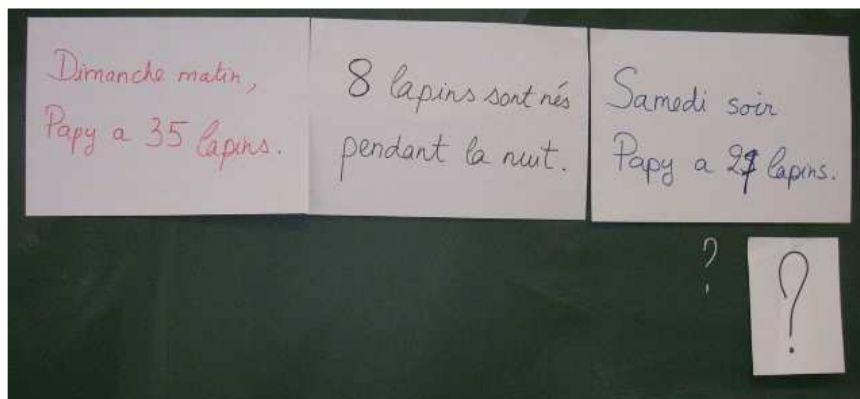 Dimanche matin,
Papy a 35 lapins.
8 lapins sont nés
pendant la nuit.
Samedi soir
Papy a 27 lapins.
?
?